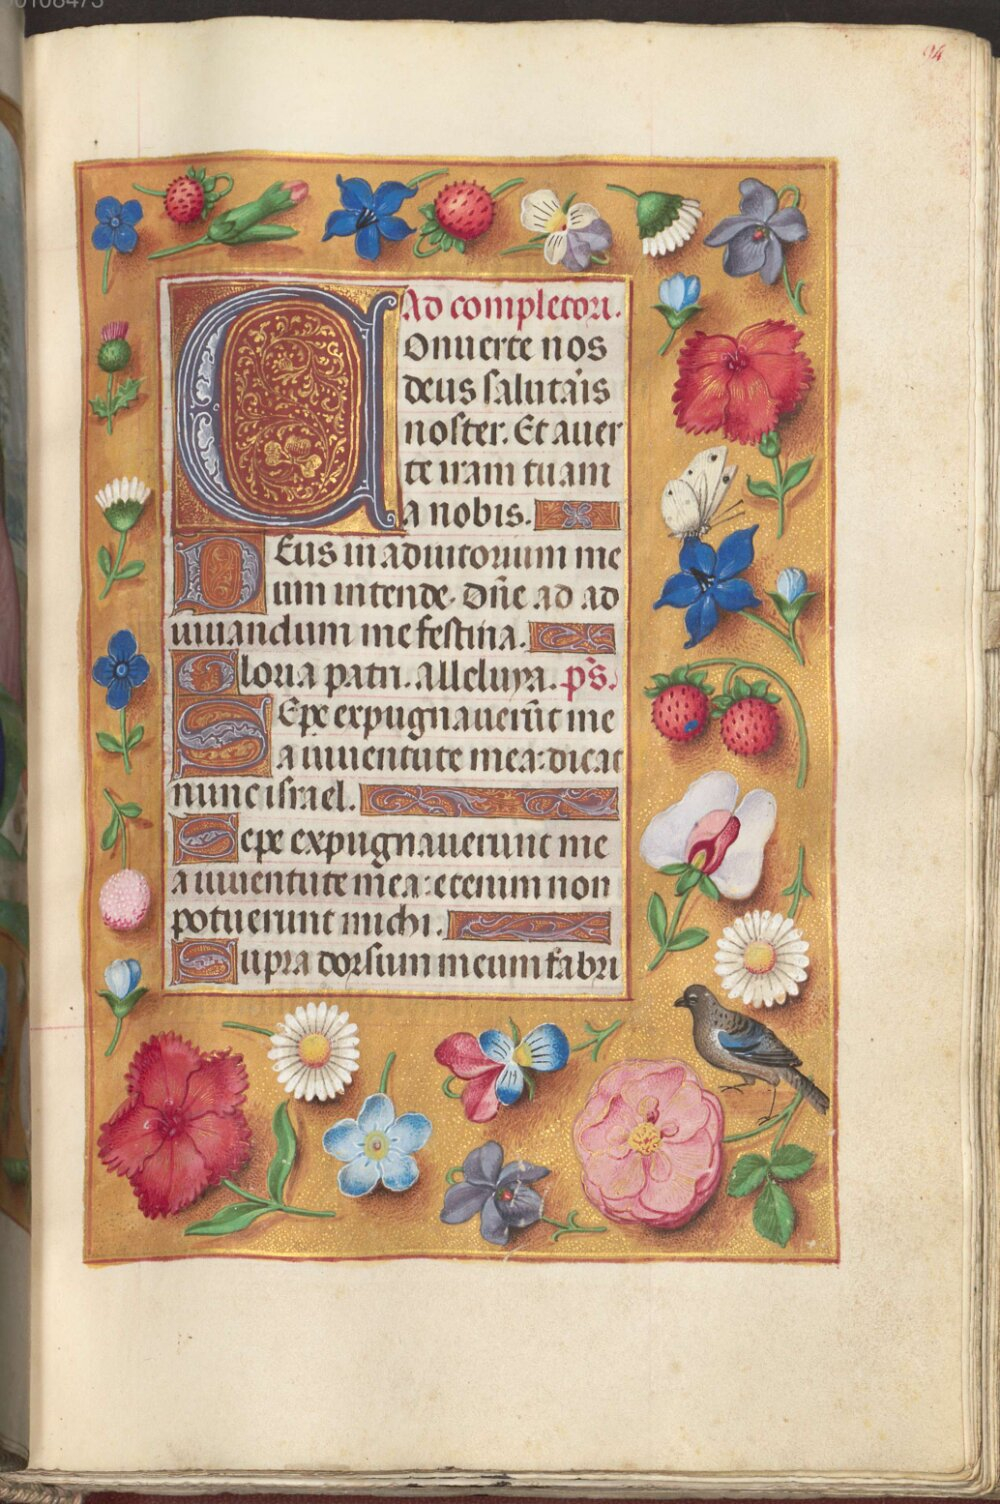 00108473
94
Ad completori.
Conuerte nos
deus salutaris
noster. Et auer
te iram tuam
a nobis.
Deus in adiutorium me
um intende. Dñe ad ad
iuuandum me festina.
Gloria patri. Alleluya. ps̃.
Sepe expugnauerũt me
a iuuentute mea: dicat
nunc israel.
Sepe expugnauerunt me
a iuuentute mea: etenim non
potuerunt michi.
Supra dorsum meum fabri